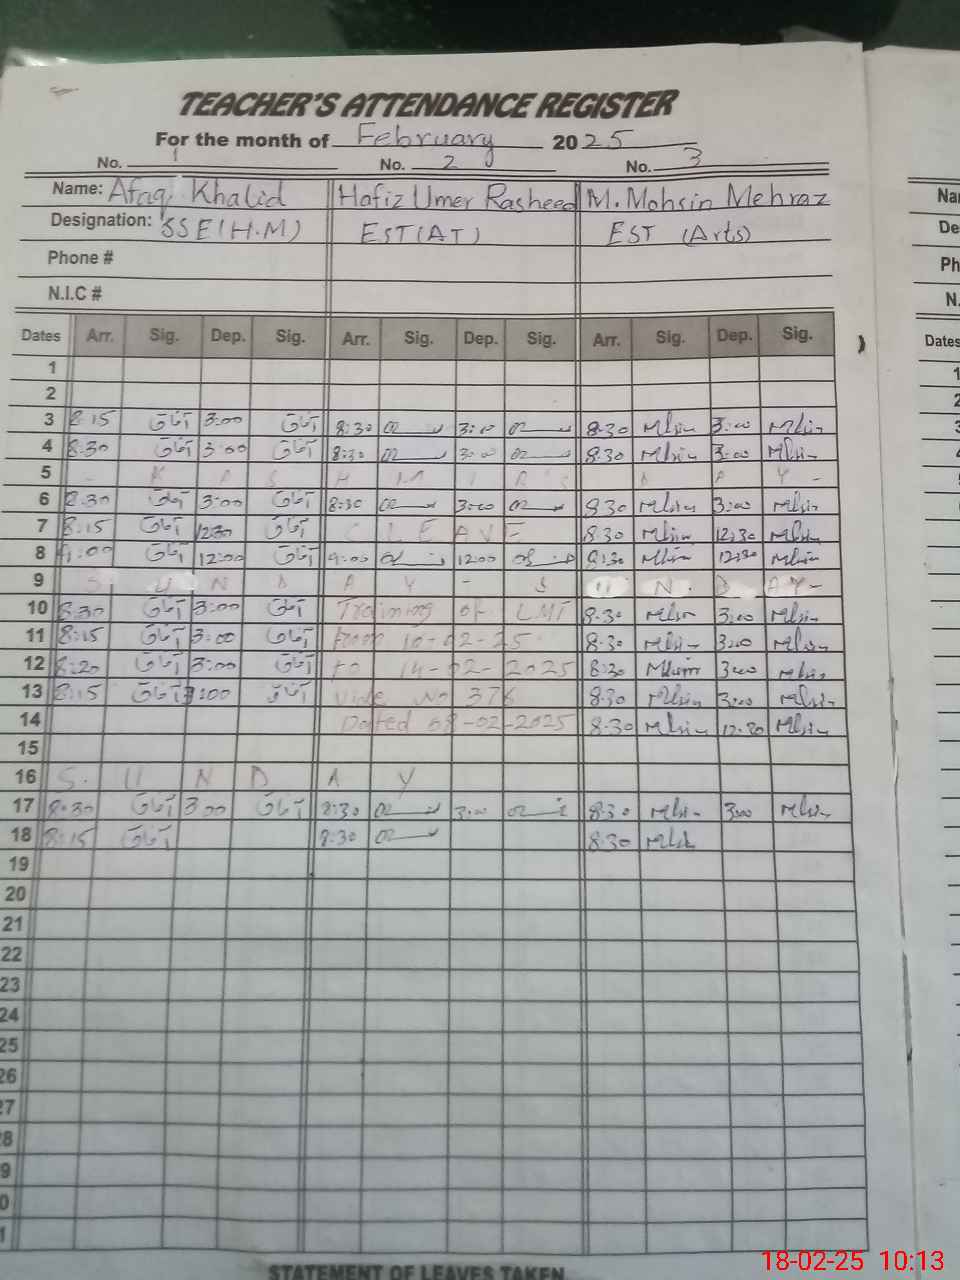 TEACHER'S ATTENDANCE REGISTER
For the month of February 2025
No. 1 No. 2 No. 3
Name: Afaq Khalid Hafiz Umer Rasheed M. Mohsin Mehraz
Designation: SSE(H.M) EST(AT) EST (Arts)
Phone #
N.I.C #
Dates Arr. Sig. Dep. Sig. Arr. Sig. Dep. Sig. Arr. Sig. Dep. Sig.
1
2
3 8:15 آفاق 3:00 آفاق 8:30 3:00 8.30 Mhsin 3:00 Mhsin
4 8:30 آفاق 3:00 آفاق 8:30 3:00 8.30 Mhsin 3:00 Mhsin
5 - K A S H M I R'S D A Y -
6 8:30 آفاق 3:00 آفاق 8:30 3:00 8.30 Mhsin 3:00 Mhsin
7 8:15 آفاق 12:30 آفاق C LEAVE 8.30 Mhsin 12:30 Mhsin
8 9:00 آفاق 12:00 آفاق 9:00 12:00 Mhsin 12:30 Mhsin
9 S U N D A Y - S U N D A Y -
10 8:30 آفاق 3:00 آفاق Training of LMT 8.30 Mhsin 3:00 Mhsin
11 8:15 آفاق 3:00 آفاق from 10-02-25 8.30 Mhsin 3:00 Mhsin
12 8:20 آفاق 3:00 آفاق to 14-02-2025 8:30 Mhsin 3:00 Mhsin
13 8:15 آفاق 3:00 آفاق vide No 376 8.30 Mhsin 3:00 Mhsin
14 Dated 08-02-2025 8.30 Mhsin 12.30 Mhsin
15
16 S U N D A Y
17 8:30 آفاق 3:00 آفاق 8:30 3:00 8.30 Mhsin 3:00 Mhsin
18 8:15 آفاق 8:30 8.30 Mhsin
19
20
21
22
23
24
25
26
27
8
9
0
1
STATEMENT OF LEAVES TAKEN
Dates
18-02-25 10:13